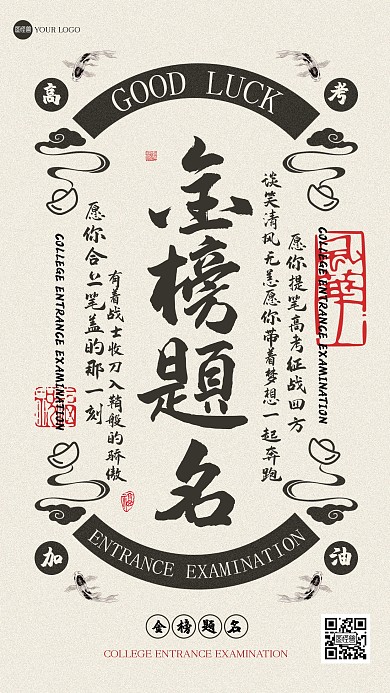 图怪兽 YOUR LOGO
GOOD LUCK
高考
金榜题名
谈笑清风无恙愿你带着梦想一起奔跑
愿你提笔高考征战四方
COLLEGE ENTRANCE EXAMINATION
愿你合上笔盖的那一刻
有着战士收刀入鞘般的骄傲
COLLEGE ENTRANCE EXAMINATION
加油
ENTRANCE EXAMINATION
金榜题名
COLLEGE ENTRANCE EXAMINATION
图怪兽